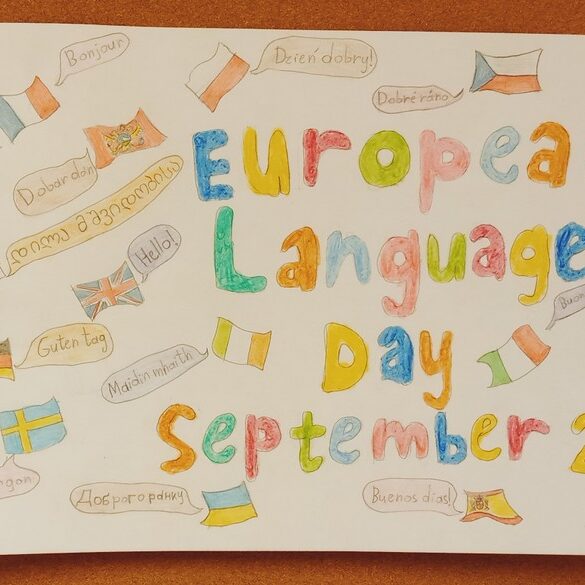 Bonjour
Dzień dobry!
Dobré ráno
Dobar dan
Europea
დილა მშვიდობისა
Hello!
Language
Buon
Guten tag
Maidin mhaith
Day
September 2
Доброго ранку
Buenos días!